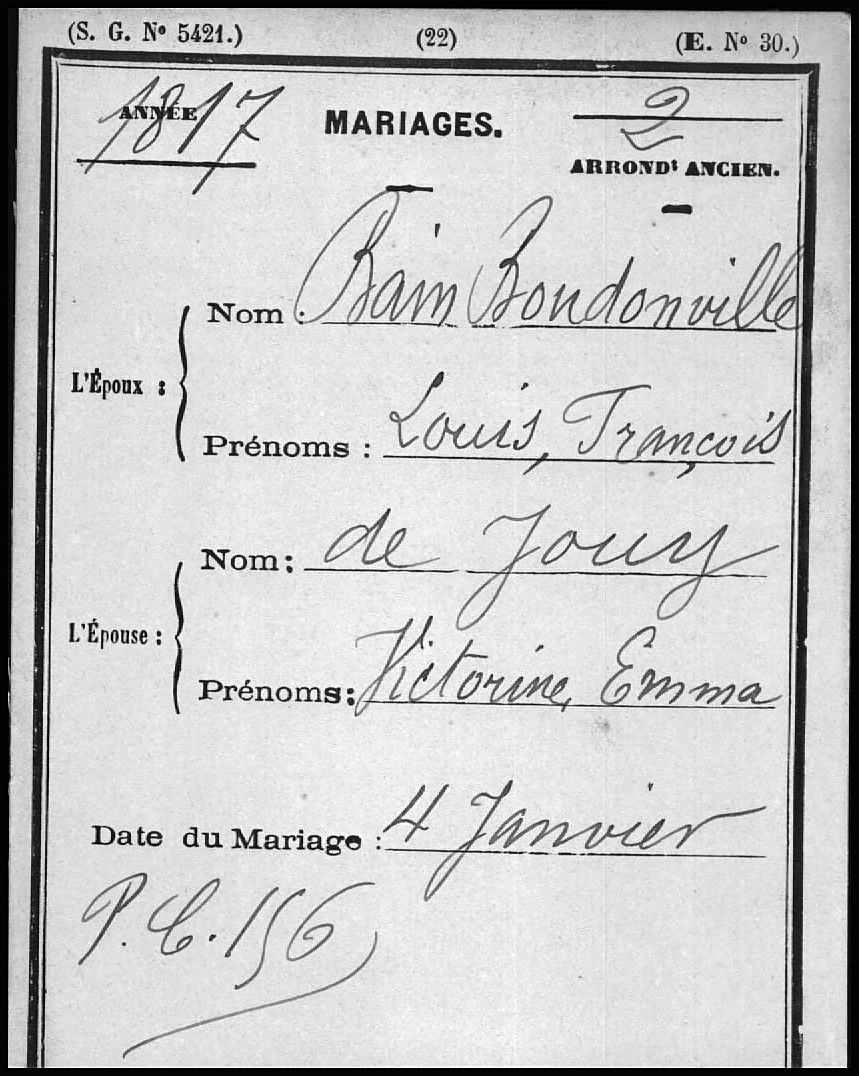 (S. G. Nº 5421.) (22) (E. Nº 30.)
ANNÉE 1817 MARIAGES. 2
ARRONDt ANCIEN.
Nom : Bain Boudonville
L'Époux :
Prénoms : Louis, François
Nom : de Jouy
L'Épouse :
Prénoms : Victorine, Emma
Date du Mariage : 4 Janvier
P. C. 156